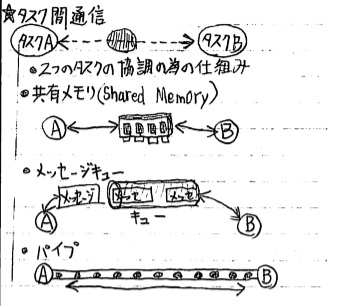 ☆タスク間通信
タスクA タスクB
・2つのタスクの協調の為の仕組み
・共有メモリ(Shared Memory)
A B
・メッセージキュー
メッセージ メッセ メッセ
キュー
A B
・パイプ
A B